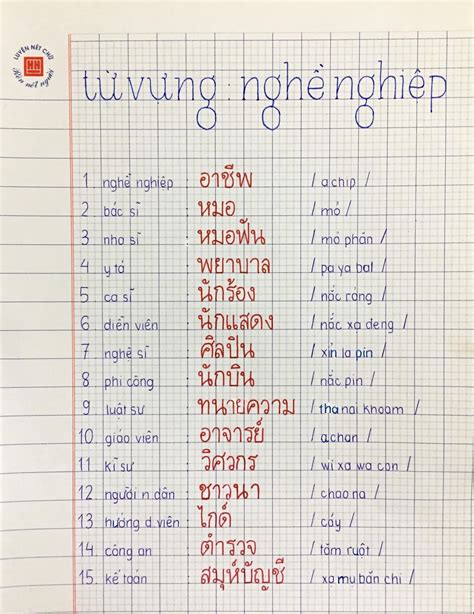 LUYỆN NÉT CHỮ
HN
Rèn nết người
từ vựng : nghề nghiệp
1. nghề nghiệp : อาชีพ / a chip /
2 bác sĩ : หมอ / mỏ /
3 nha sĩ : หมอฟัน / mỏ phăn /
4 y tá : พยาบาล / pa ya bal /
5 ca sĩ : นักร้อง / nắc rọng /
6 diễn viên : นักแสดง / nắc xạ đeng /
7 nghệ sĩ : ศิลปิน / xỉn la pin /
8 phi công : นักบิน / nắc pin /
9 luật sư : ทนายความ / tha nai khoam /
10. giáo viên : อาจารย์ / a chan /
11 kĩ sư : วิศวกร / wí xạ wa con /
12 người n.dân : ชาวนา / chao na /
13 hướng d.viên : ไกด์ / cáy /
14. công an : ตำรวจ / tăm ruột /
15. kế toán : สมุห์บัญชี / xạ mụ băn chi /